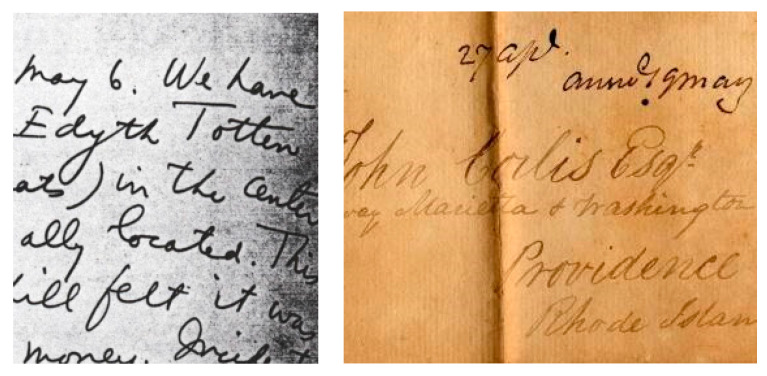 May 6. We have
Edyth Totten
ats) in the center
ally located. This
ill felt it was
money. Incident
27 apl.
John Corlis Esqr.
way Marietta & Washington
Providence
Rhode Islan